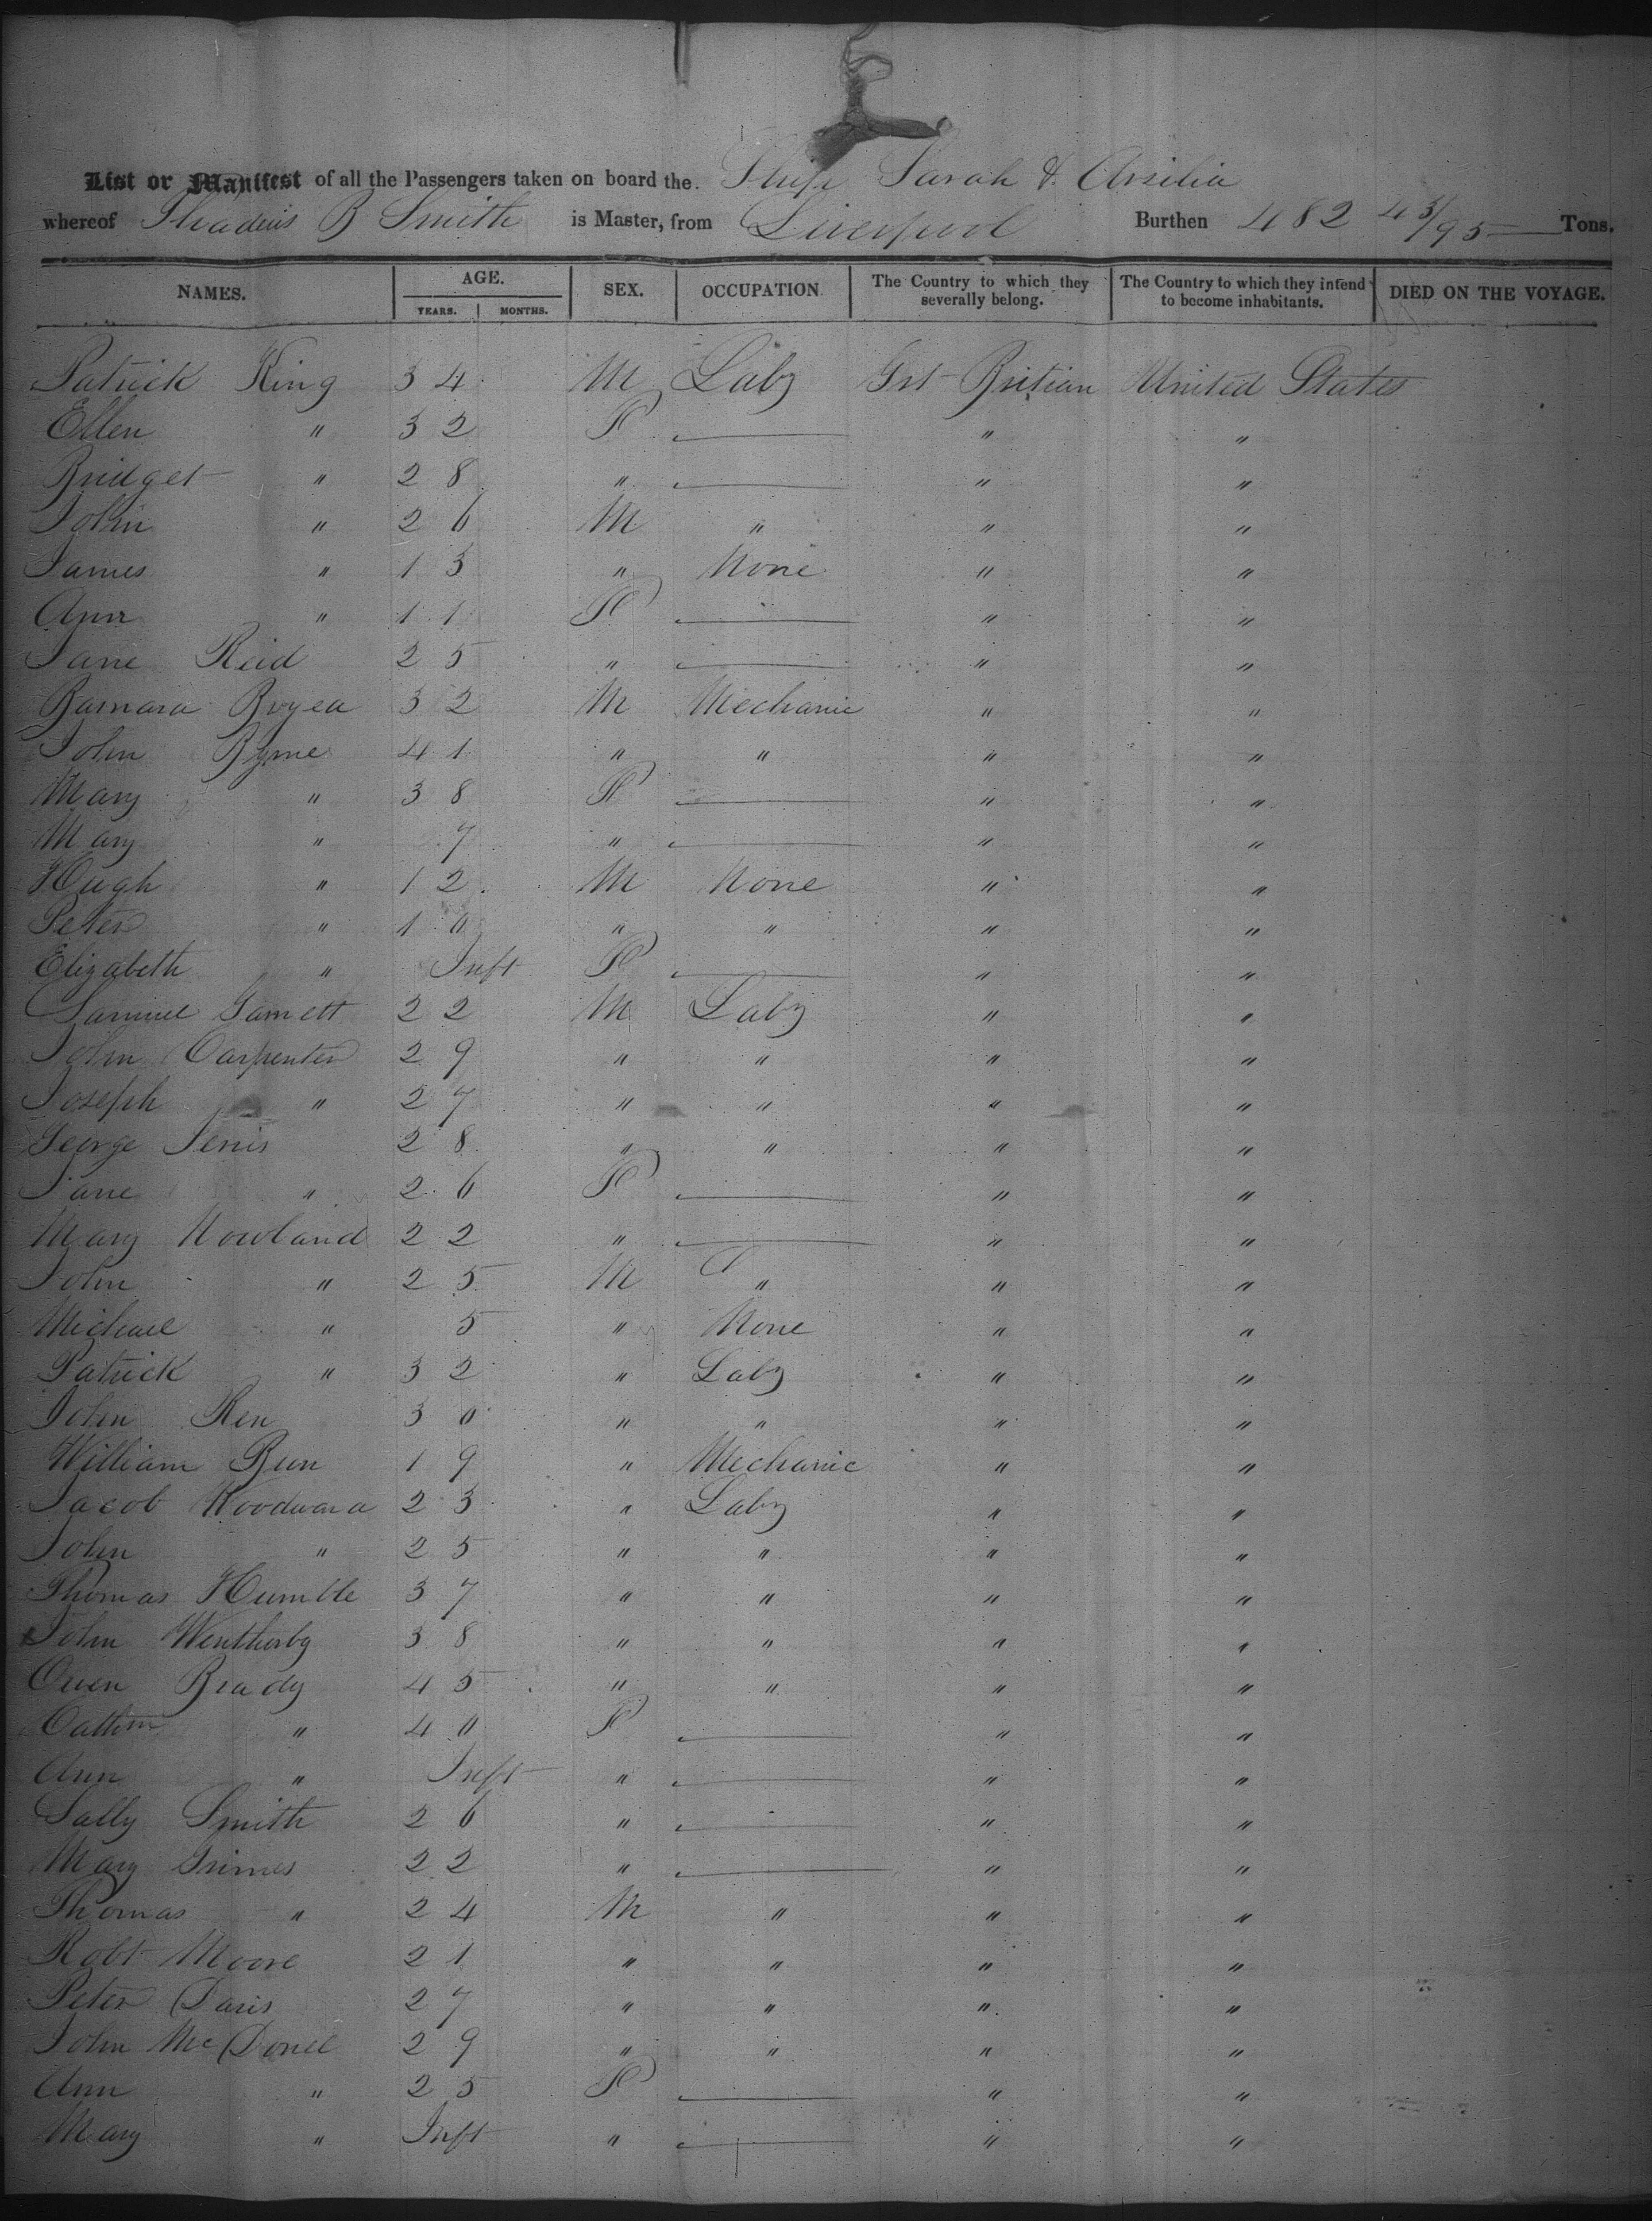 List or Manifest of all the Passengers taken on board the Ship Sarah & Arsilia
whereof Thadeus B Smith is Master, from Liverpool Burthen 482 43/95 Tons.
NAMES. AGE. SEX. OCCUPATION The Country to which they severally belong. The Country to which they intend to become inhabitants. DIED ON THE VOYAGE.
YEARS. MONTHS.
Patrick King 34 M Labr Grt Britian United States
Ellen " 32 F — " "
Bridget " 28 " — " "
John " 26 M " " "
James " 13 " None " "
Ann " 11 F — " "
Jane Reid 25 " — " "
32 M Mechanic " "
John Byrne 41 " " " "
Mary " 38 F — " "
Mary " 7 " — " "
Hugh " 12 M None " "
Peter " 10 " " " "
Elizabeth " Inft F — " "
Samuel Garnett 22 M Labr " "
John Carpenter 29 " " " "
Joseph " 27 " " " "
George 28 " " " "
Jane " 26 F — " "
Mary Nowland 22 " — " "
John " 25 M " " "
Michael " 5 " None " "
Patrick " 32 " Labr " "
John Ren 30 " " " "
William 19 " Mechanic " "
Jacob Woodward 23 " Labr " "
John " 25 " " " "
Thomas Humble 37 " " " "
John 38 " " " "
Owen Brady 45 " " " "
Cathrn " 40 F — " "
Ann " Inft " — " "
Sally Smith 26 " — " "
Mary Grimes 22 " — " "
Thomas " 24 M " " "
Robt Moore 21 " " " "
Peter Davis 27 " " " "
John McDonel 29 " " " "
Ann " 25 F — " "
Mary " Inft " — " "